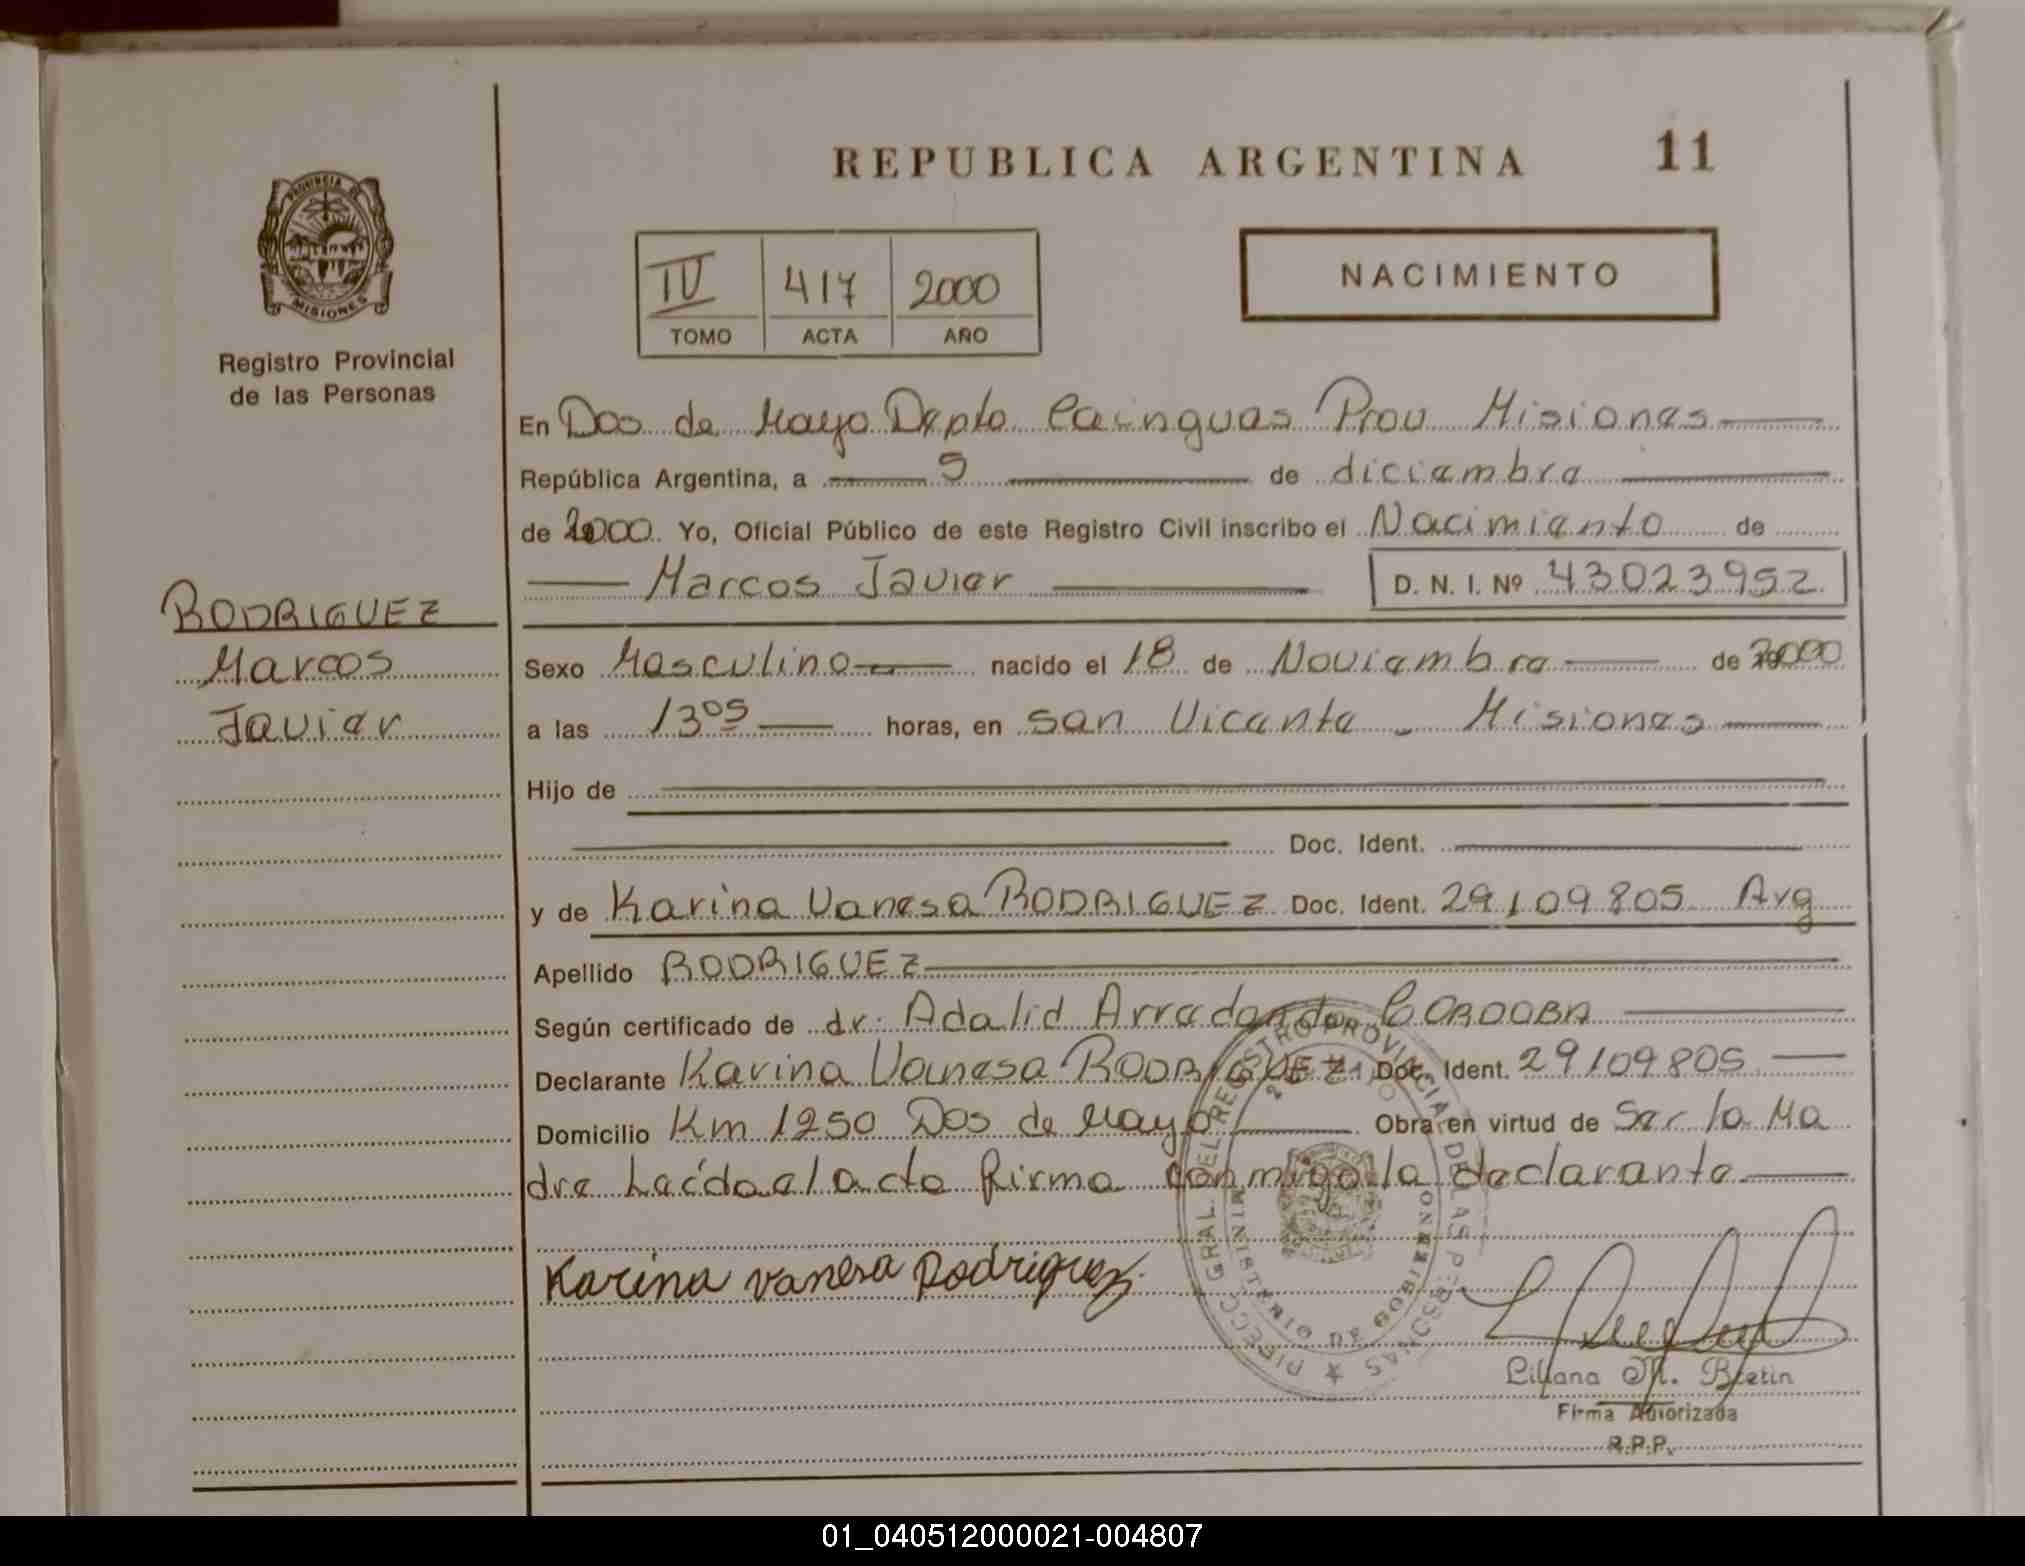 REPUBLICA ARGENTINA 11
PROVINCIA DE
MISIONES
Registro Provincial
de las Personas
IV 417 2000
TOMO ACTA AÑO
NACIMIENTO
En Dos de Mayo Depto Cainguas Prov Misiones
República Argentina, a 5 de diciembre
de 2000 Yo, Oficial Público de este Registro Civil inscribo el Nacimiento de
Marcos Javier D. N. I. Nº 43023952
RODRIGUEZ
Marcos
Javier
Sexo Masculino nacido el 18 de Noviembre de 2000
a las 13 05 horas, en San Vicente - Misiones
Hijo de
Doc. Ident.
y de Karina Vanesa RODRIGUEZ Doc. Ident. 29109805 Arg
Apellido RODRIGUEZ
Según certificado de dr. Adalid Arredondo CORDOBA
Declarante Karina Vanesa RODRIGUEZ Doc. Ident. 29109805
Domicilio Km 1250 Dos de Mayo Obra en virtud de Ser la Ma
dre Leída el acta firma conmigo la declarante
Karina Vanesa Rodriguez
DIRECC. GRAL. DEL REGISTRO PROVINCIAL DE LAS PERSONAS
MINISTERIO DE GOBIERNO
Liliana M. Bretin
Firma Autorizada
R.P.P.
01_040512000021-004807